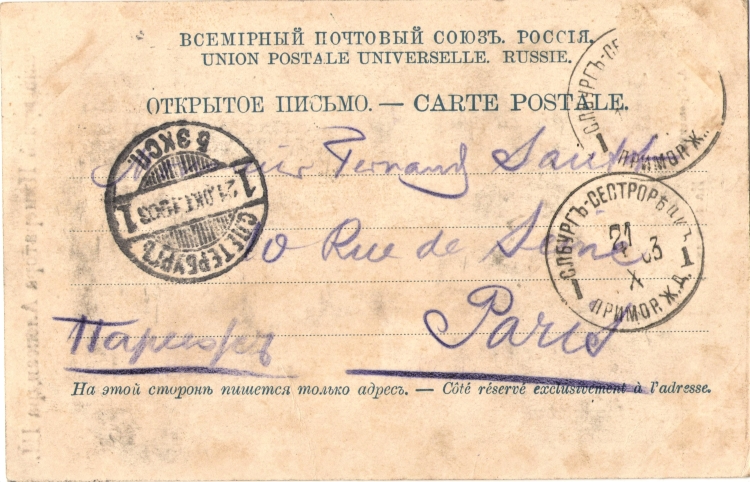 ВСЕМІРНЫЙ ПОЧТОВЫЙ СОЮЗЪ. РОССІЯ.
UNION POSTALE UNIVERSELLE. RUSSIE.
ОТКРЫТОЕ ПИСЬМО. — CARTE POSTALE.
С.ПБУРГЪ-СЕ
1
ПРИМОР. Ж.
5 ЭКСП.
1 21.ОКТ.1903 1
С.ПЕТЕРБУРГЪ
Fernand
С.ПБУРГЪ-СЕСТРОРѢЦКЪ
21
X 03
1 1
ПРИМОР. Ж. Д.
Rue de Seine
Paris
Парижъ
На этой сторонѣ пишется только адресъ. — Côté réservé exclusivement à l'adresse.